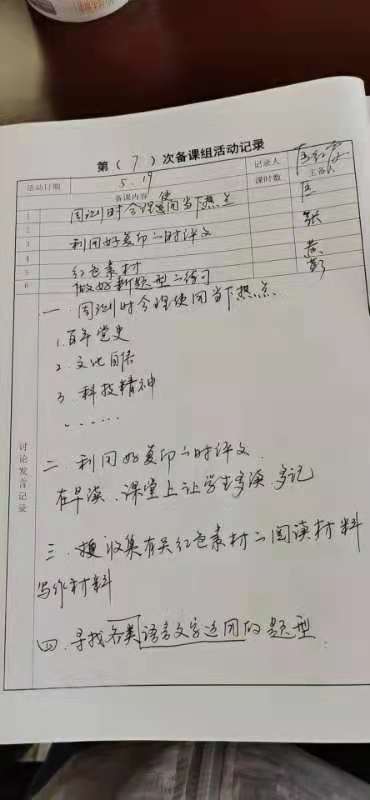 第（7）次备课组活动记录
活动日期 5.19 记录人
备课内容 课时数 主备人
1 周测时合理使用当下热点 王
2
3 利用好复印的时评文 张
4
5 红色素材 黄
6 做好新题型的练习 彭
讨论发言记录
一. 周测时合理使用当下热点
1.百年党史
2.文化自信
3.科技精神
......
二. 利用好复印的时评文
在早读、课堂上让学生多读、多记
三. 收集有关红色素材的阅读材料
写作材料
四. 寻找各类语言文字运用的题型